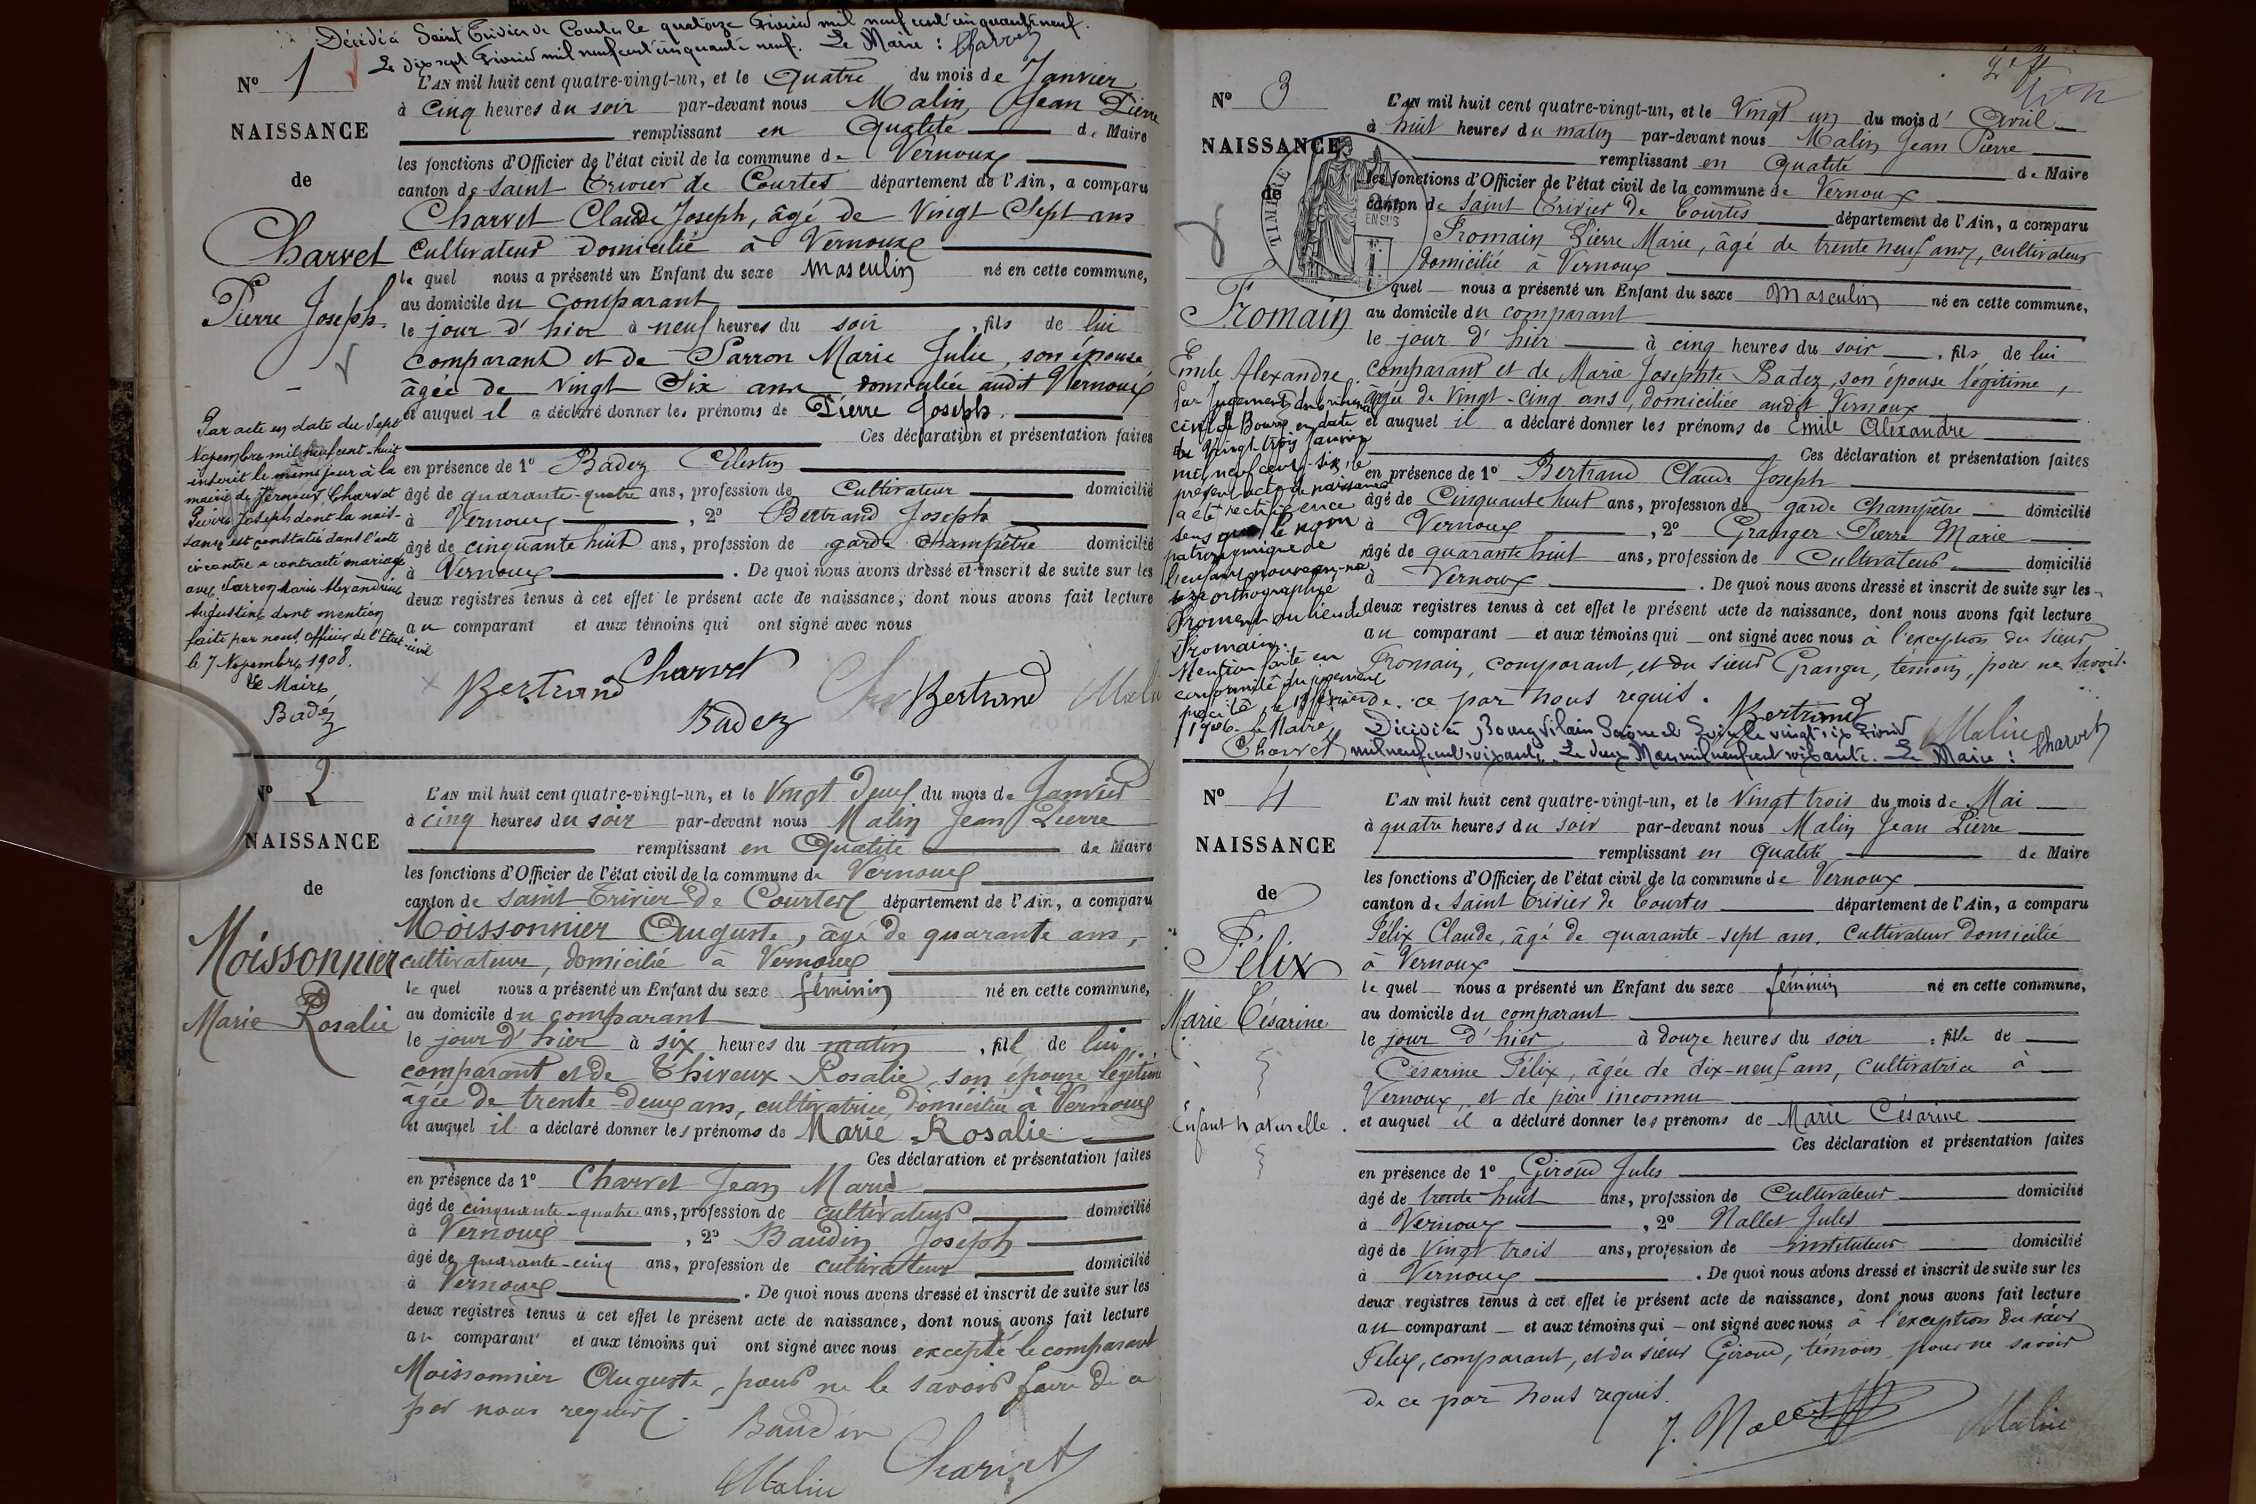 Décédé à Saint Trivier de Courtes le quatorze Février mil neuf cent cinquante neuf.
Le dix sept Février mil neuf cent cinquante neuf. Le Maire : Charvet
N° 1
NAISSANCE
de
Charvet
Pierre Joseph.
L'AN mil huit cent quatre-vingt-un, et le Quatre du mois de Janvier
à cinq heures du soir par-devant nous Malin Jean Pierre
remplissant en Qualité de Maire
les fonctions d'Officier de l'état civil de la commune de Vernoux
canton de Saint Trivier de Courtes département de l'Ain, a comparu
Charvet Claude Joseph, âgé de vingt Sept ans
cultivateur domicilié à Vernoux
le quel nous a présenté un Enfant du sexe masculin né en cette commune,
au domicile du comparant
le jour d'hier à neuf heures du soir, fils de lui
comparant et de Parron Marie Julie, son épouse
âgée de vingt Six ans domiciliée audit Vernoux
et auquel il a déclaré donner les prénoms de Pierre Joseph.
Ces déclaration et présentation faites
en présence de 1° Badez Célestin
âgé de quarante-quatre ans, profession de Cultivateur domicilié
à Vernoux, 2° Bertrand Joseph
âgé de cinquante huit ans, profession de garde champêtre domicilié
à Vernoux. De quoi nous avons dressé et inscrit de suite sur les
deux registres tenus à cet effet le présent acte de naissance, dont nous avons fait lecture
au comparant et aux témoins qui ont signé avec nous
Bertrand Charvet Badez Bertrand Malin
Par acte en date du Sept
Novembre mil neuf cent-huit
inscrit le même jour à la
mairie de Vernoux Charvet
Pierre Joseph dont la nais-
sance est constatée dans l'acte
ci-contre a contracté mariage
avec Parron Marie Alexandrine
Augustine dont mention
faite par nous Officier de l'Etat-civil
le 7 Novembre 1908.
Le Maire,
Badez
N° 2
NAISSANCE
de
Moissonnier
Marie Rosalie
L'AN mil huit cent quatre-vingt-un, et le Vingt deux du mois de Janvier
à cinq heures du soir par-devant nous Malin Jean Pierre
remplissant en Qualité de Maire
les fonctions d'Officier de l'état civil de la commune de Vernoux
canton de Saint Trivier de Courtes département de l'Ain, a comparu
Moissonnier Auguste, âgé de quarante ans,
cultivateur, domicilié à Vernoux
le quel nous a présenté un Enfant du sexe féminin né en cette commune,
au domicile du comparant
le jour d'hier à six heures du matin, fille de lui
comparant et de Thiveux Rosalie, son épouse légitime
âgée de trente-deux ans, cultivatrice, domiciliée à Vernoux
et auquel il a déclaré donner les prénoms de Marie Rosalie
Ces déclaration et présentation faites
en présence de 1° Charvet Jean Marie
âgé de cinquante-quatre ans, profession de cultivateur domicilié
à Vernoux, 2° Baudin Joseph
âgé de quarante-cinq ans, profession de cultivateur domicilié
à Vernoux. De quoi nous avons dressé et inscrit de suite sur les
deux registres tenus à cet effet le présent acte de naissance, dont nous avons fait lecture
au comparant et aux témoins qui ont signé avec nous excepté le comparant
Moissonnier Auguste, pour ne le savoir faire de ce
par nous requis.
Baudin
Malin Charvet
N° 3
NAISSANCE
de
TIMBRE
Fromain
Emile Alexandre.
L'AN mil huit cent quatre-vingt-un, et le Vingt un du mois d'Avril
à huit heures du matin par-devant nous Malin Jean Pierre
remplissant en Qualité de Maire
les fonctions d'Officier de l'état civil de la commune de Vernoux
canton de Saint Trivier de Courtes département de l'Ain, a comparu
Fromain Pierre Marie, âgé de trente neuf ans, cultivateur
domicilié à Vernoux
le quel nous a présenté un Enfant du sexe Masculin né en cette commune,
au domicile du comparant
le jour d'hier à cinq heures du soir, fils de lui
comparant et de Marie Josephte Badez, son épouse légitime,
âgée de vingt-cinq ans, domiciliée audit Vernoux
et auquel il a déclaré donner les prénoms de Emile Alexandre
Ces déclaration et présentation faites
en présence de 1° Bertrand Claude Joseph
âgé de Cinquante huit ans, profession de garde champêtre domicilié
à Vernoux, 2° Granger Pierre Marie
âgé de quarante huit ans, profession de Cultivateur domicilié
à Vernoux. De quoi nous avons dressé et inscrit de suite sur les
deux registres tenus à cet effet le présent acte de naissance, dont nous avons fait lecture
au comparant et aux témoins qui ont signé avec nous à l'exception du sieur
Fromain, comparant, et du sieur Granger, témoin, pour ne savoir
de ce par nous requis.
Bertrand Malin
Par Jugement du tribunal
civil de Bourg en date
du Vingt trois janvier
mil neuf cent-six, le
présent acte de naissance
a été rectifié en ce
sens que le nom
patronymique de
l'enfant nouveau-né
orthographié
Froment au lieu de
Fromain.
Mention faite en
conformité du jugement
précité, le
1906. Le Maire,
Charvet
Décédé à Bourgvilain Saône et Loire le vingt six Février
mil neuf cent soixante. Le deux Mars mil neuf cent soixante. Le Maire : Charvet
N° 4
NAISSANCE
de
Félix
Marie Césarine
Enfant naturelle.
L'AN mil huit cent quatre-vingt-un, et le Vingt trois du mois de Mai
à quatre heures du soir par-devant nous Malin Jean Pierre
remplissant en qualité de Maire
les fonctions d'Officier de l'état civil de la commune de Vernoux
canton de Saint Trivier de Courtes département de l'Ain, a comparu
Félix Claude, âgé de quarante-sept ans, Cultivateur domicilié
à Vernoux
le quel nous a présenté un Enfant du sexe féminin né en cette commune,
au domicile du comparant
le jour d'hier à douze heures du soir, fille de
Césarine Félix, âgée de dix-neuf ans, cultivatrice à
Vernoux, et de père inconnu
et auquel il a déclaré donner les prénoms de Marie Césarine
Ces déclaration et présentation faites
en présence de 1° Giroud Jules
âgé de trente-huit ans, profession de Cultivateur domicilié
à Vernoux, 2° Nallet Jules
âgé de vingt trois ans, profession de instituteur domicilié
à Vernoux. De quoi nous avons dressé et inscrit de suite sur les
deux registres tenus à cet effet le présent acte de naissance, dont nous avons fait lecture
au comparant et aux témoins qui ont signé avec nous à l'exception du sieur
Félix, comparant, et du sieur Giroud, témoin, pour ne savoir
de ce par nous requis.
J. Nallet Malin